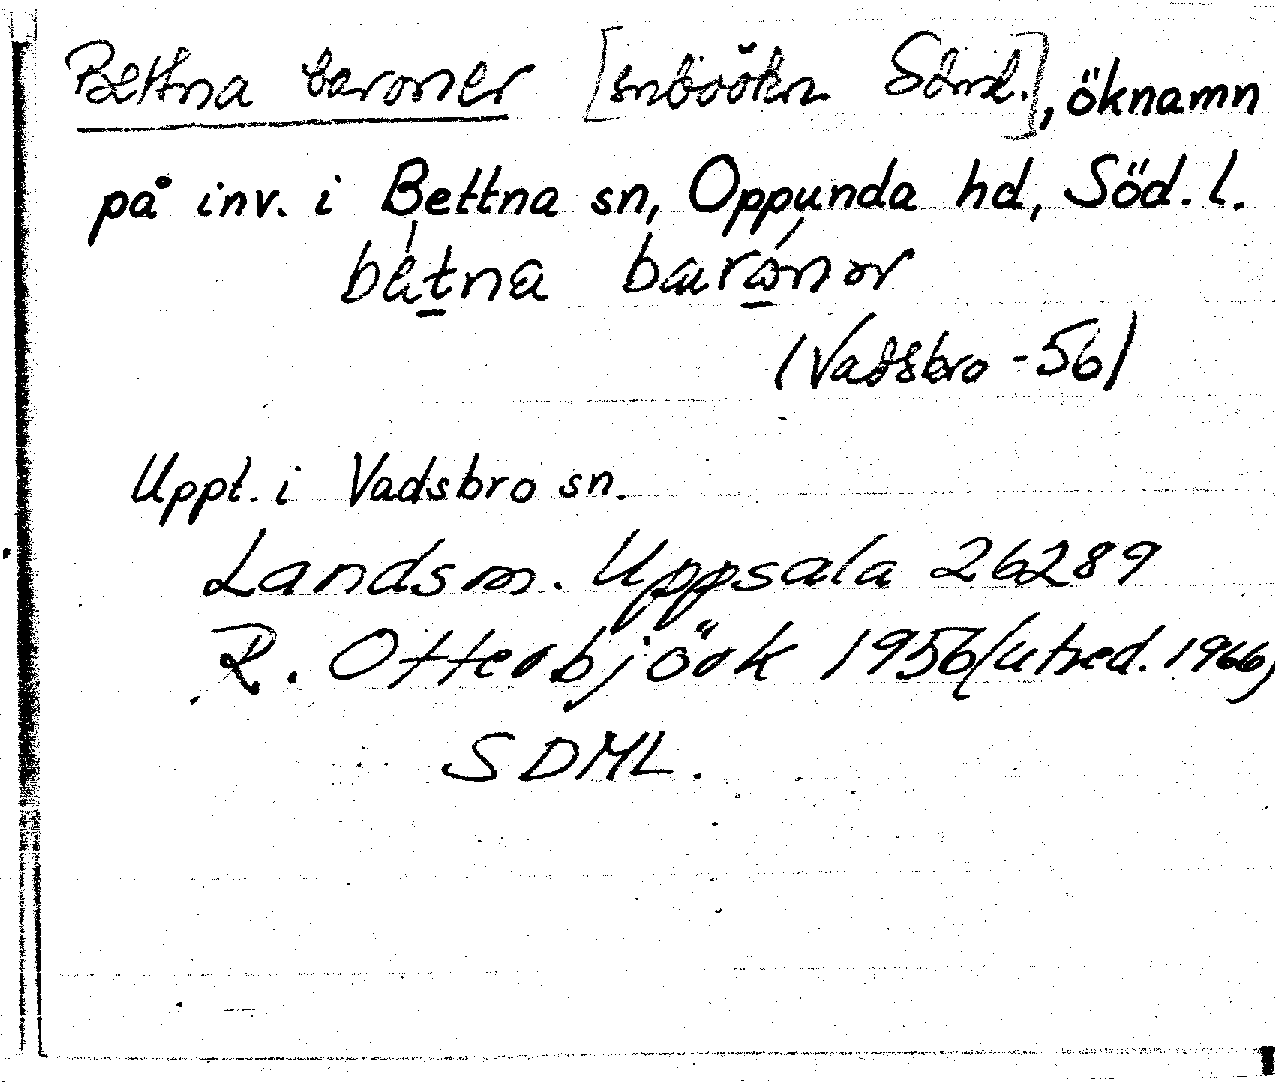 Bettna baroner [snboökn Sdml.], öknamn
på inv. i Bettna sn, Oppunda hd, Söd. l.
(Vadsbro -56)
Uppt. i Vadsbro sn.
Landsm. Uppsala 26289
R. Otterbjörk 1956 (utred. 1966)
SDML.